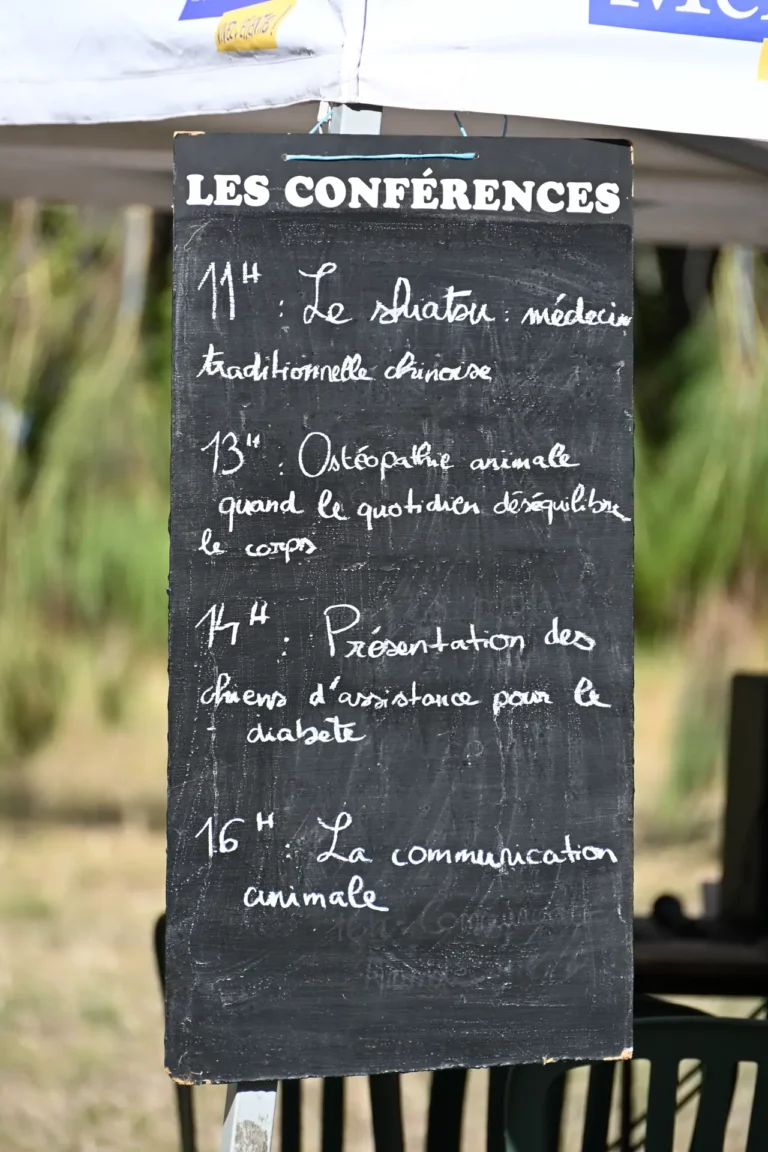 LES CONFÉRENCES
11H : Le shiatsu : médecin
traditionnelle chinoise
13H : Ostéopathie animale
quand le quotidien déséquilibre
le corps
14H : Présentation des
chiens d'assistance pour le
diabète
16H : La communication
animale